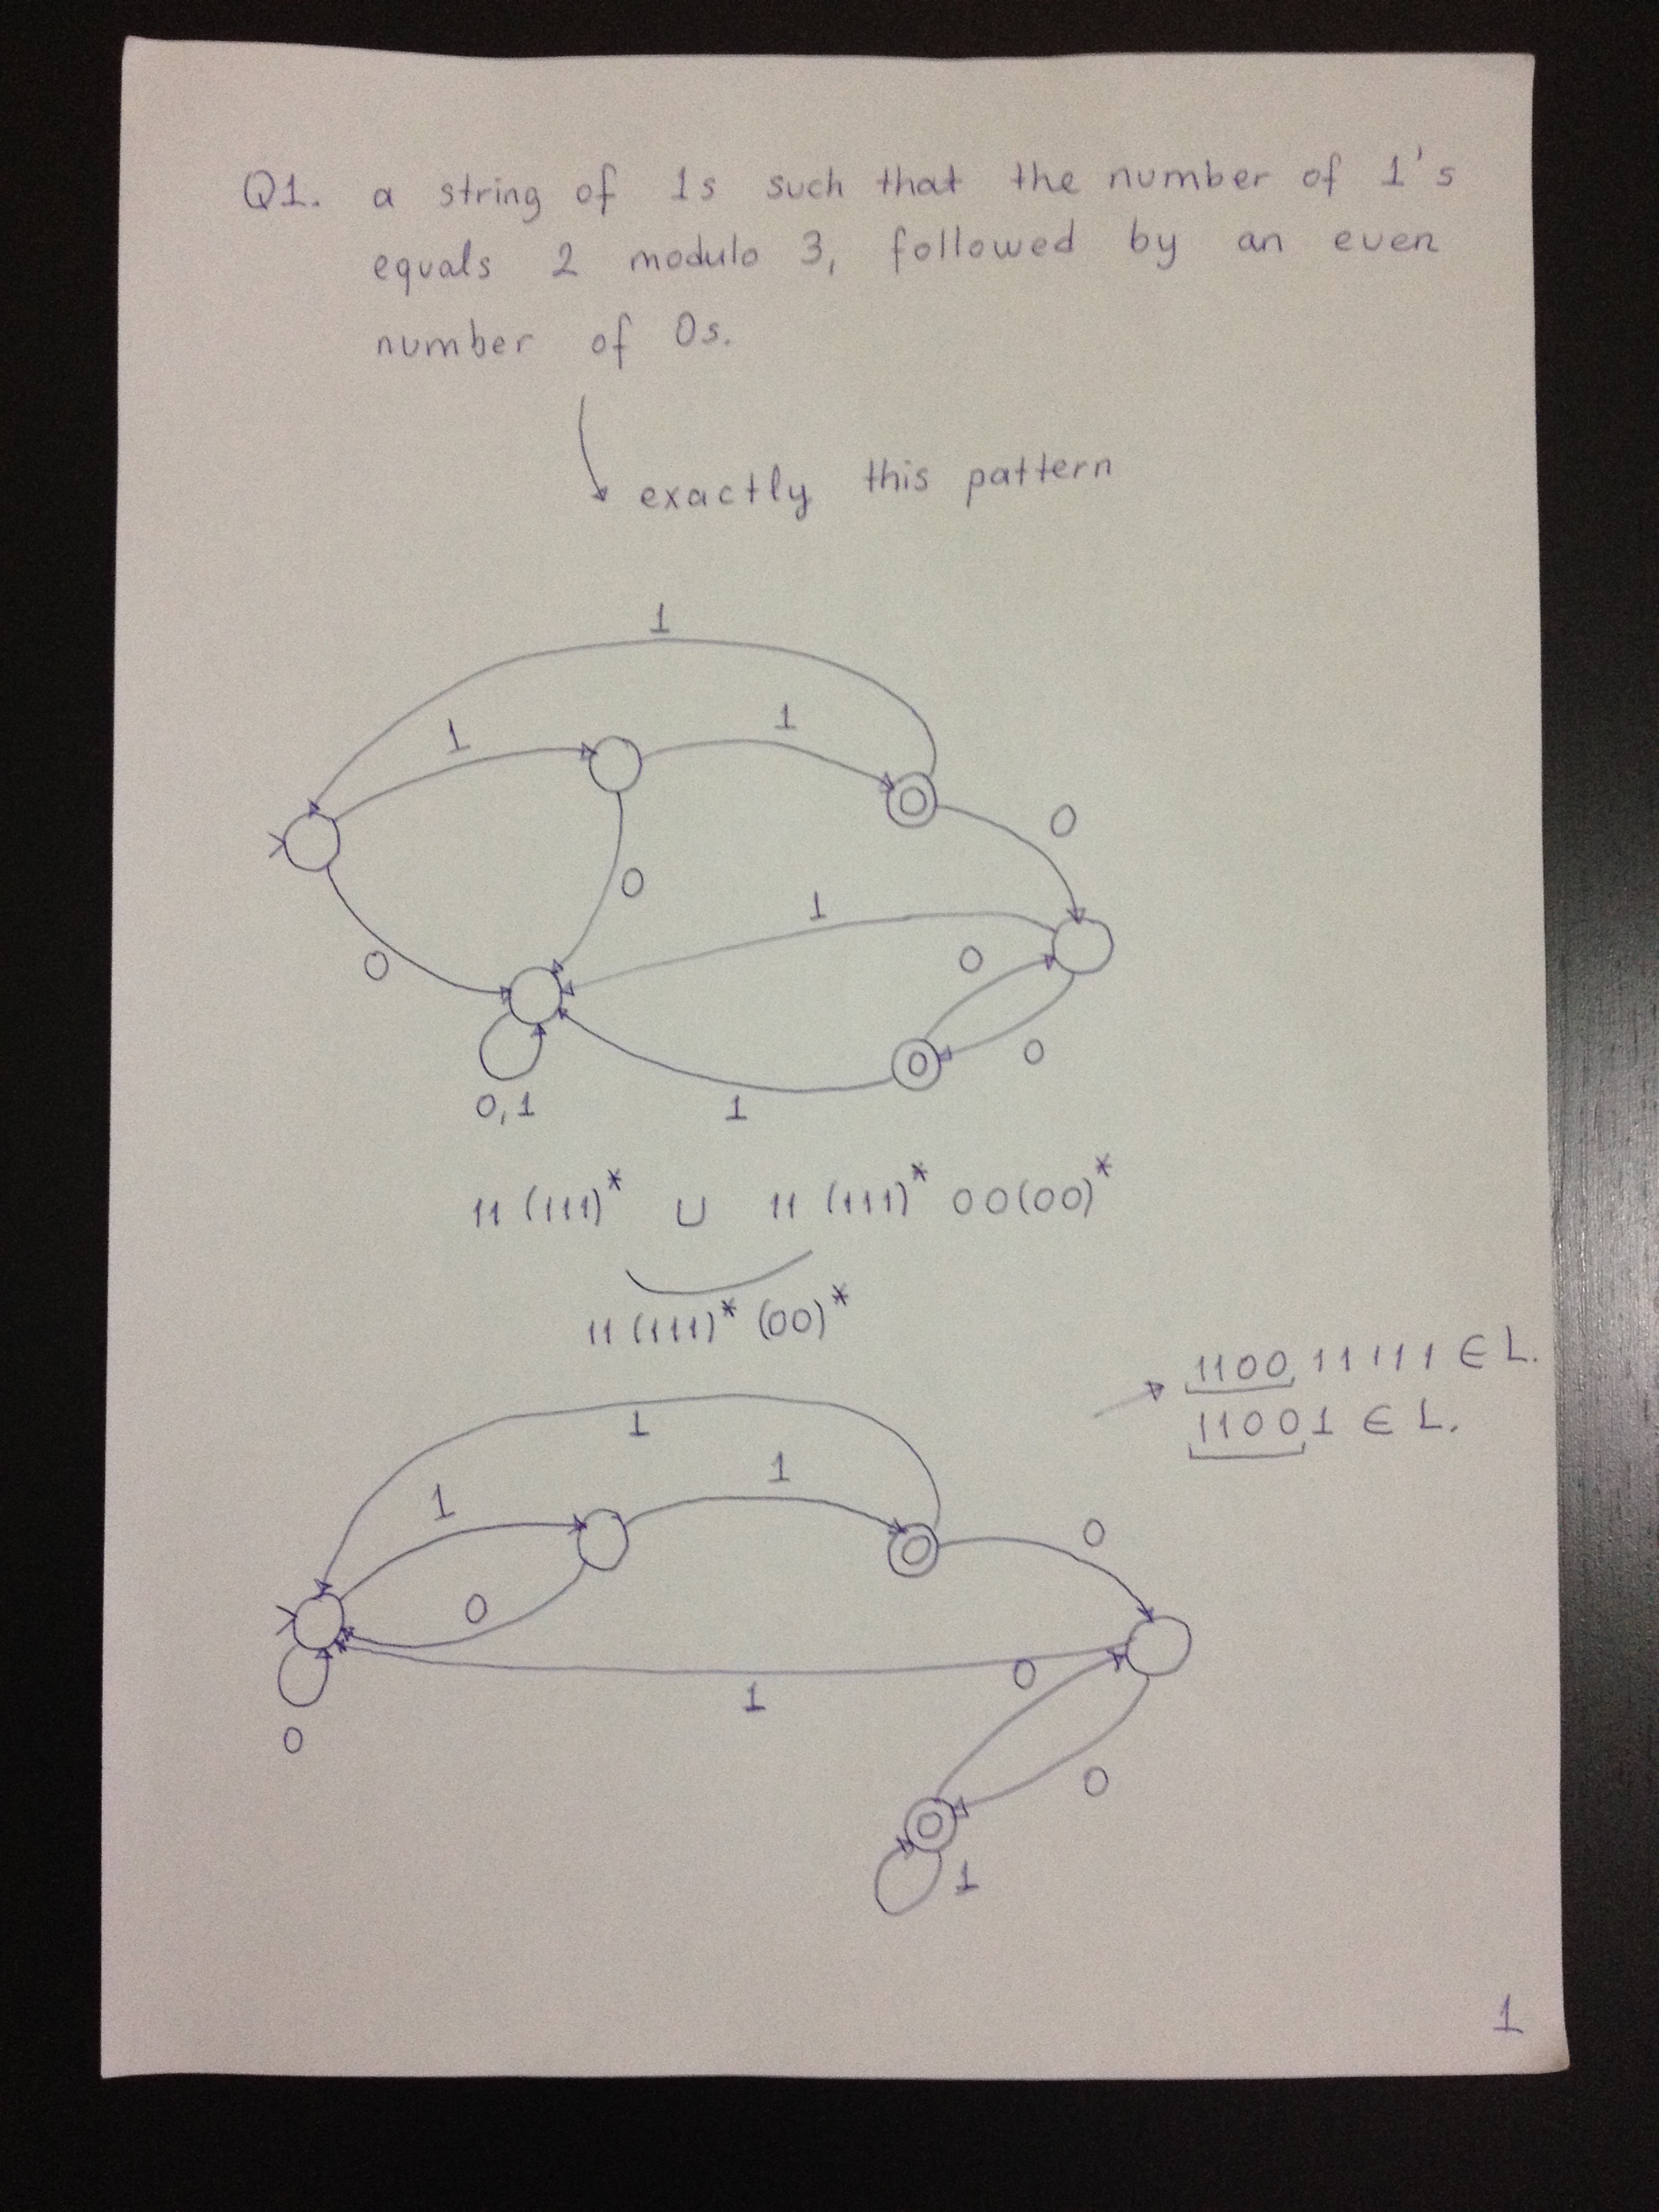 Q1. a string of 1s such that the number of 1's
equals 2 modulo 3, followed by an even
number of 0s.
exactly this pattern
1
1
1
0
0
1
0
0
0
0,1
1
11 (111)* ∪ 11 (111)* 00(00)*
11 (111)* (00)*
1100 11111 ∈ L.
11001 ∈ L.
1
1
1
0
0
0
1
0
0
1
1